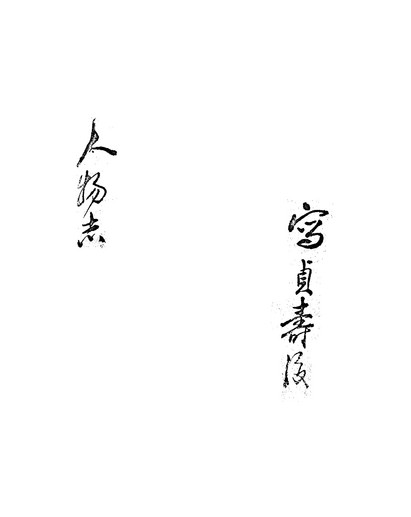 寫貞壽後
人物志